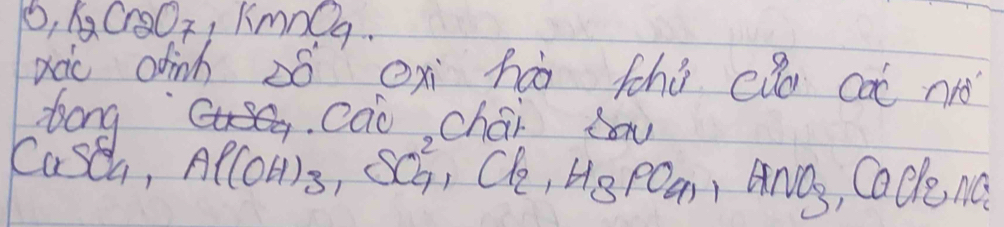 K2Cr2O7, KmnO4.
xác định số oxi hóa khử của các
trong CuSO4. các chất sau
CuSO4, Al(OH)3, SO4 2-, Cl2, H3PO4, HNO3, CaCl2,